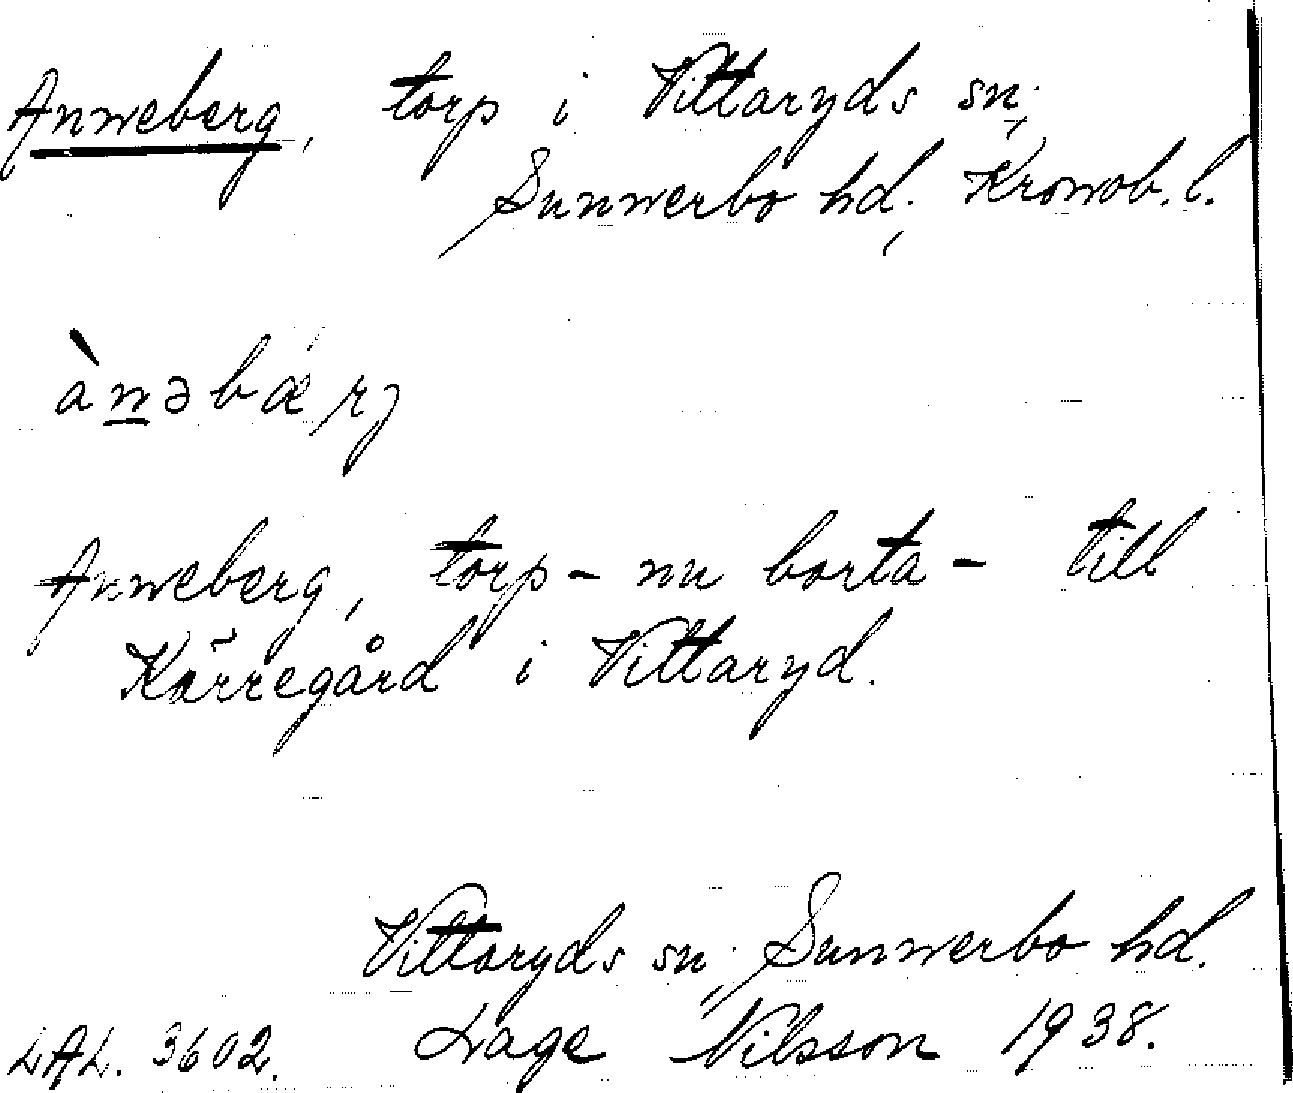 Anneberg, torp i Vittaryds sn.,
Sunnerbo hd., Kronob. l.
ànəbǽrj
Anneberg, torp – nu borta – till
Kärregård i Vittaryd.
Vittaryds sn., Sunnerbo hd.
LAL. 3602. Lage Nilsson 1938.